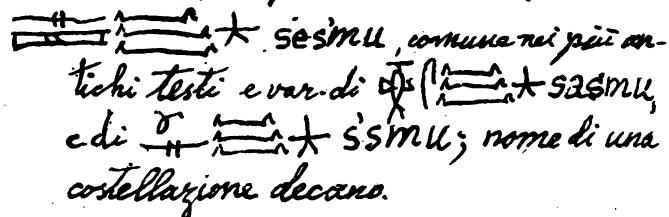 seśmu, comune nei più an-
tichi testi e var. di saśmu,
e di śsmu; nome di una
costellazione decano.